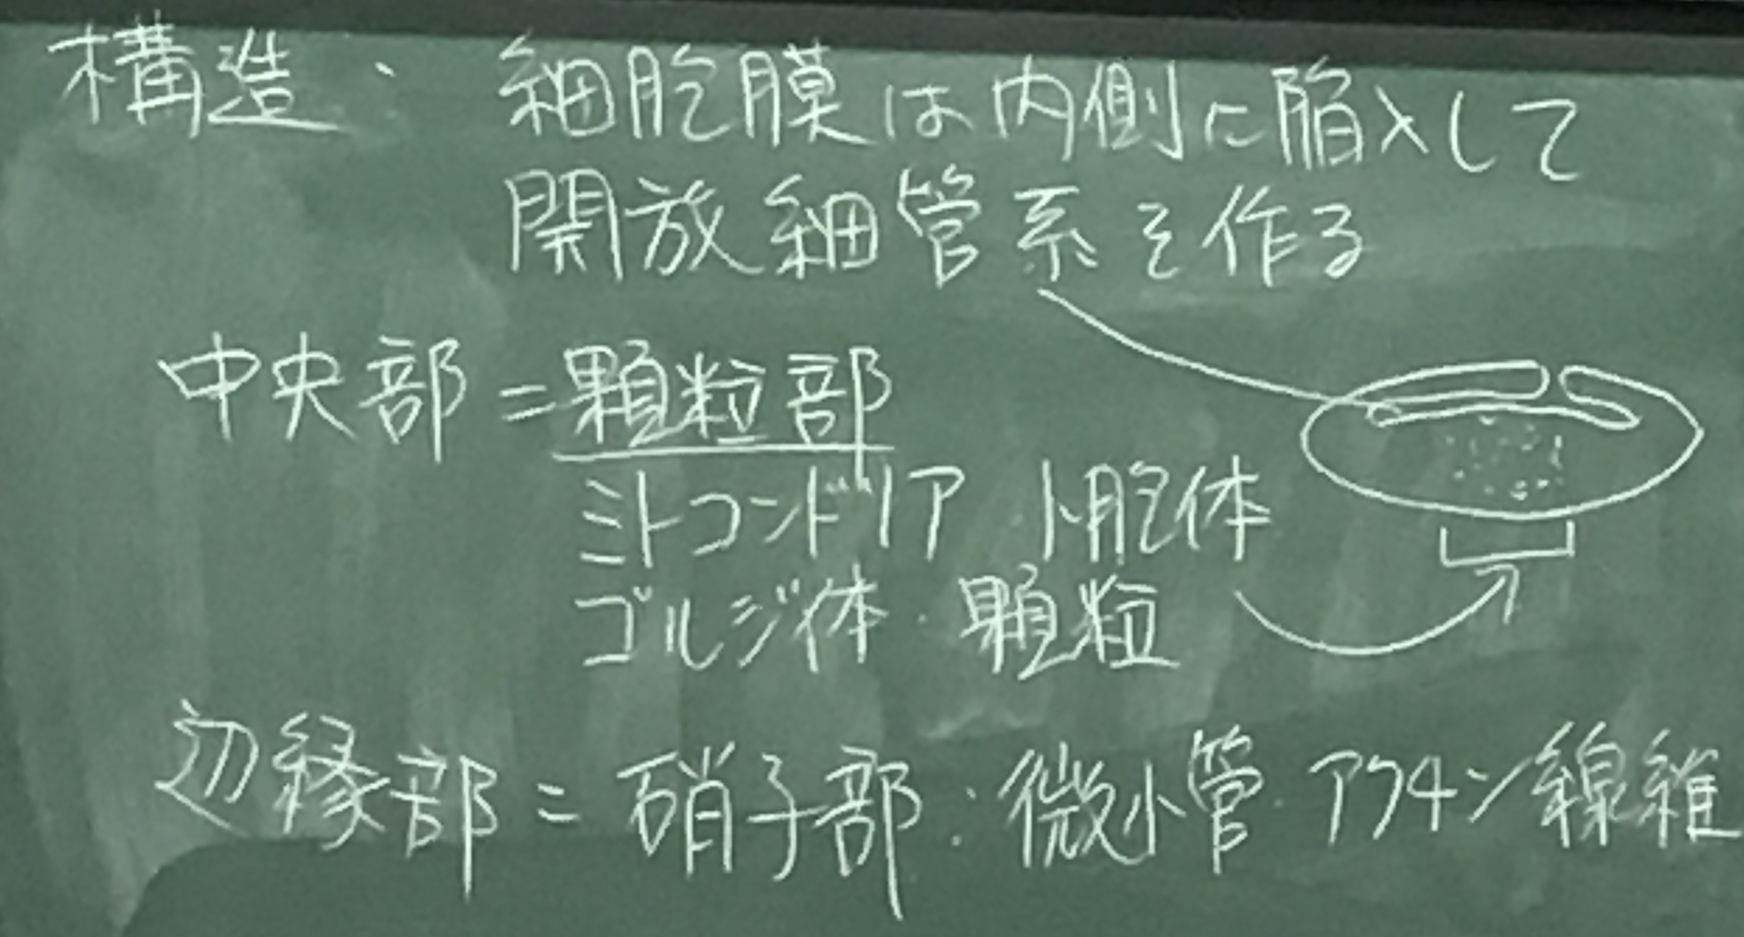 構造: 細胞膜は内側に陥入して
開放細管系を作る
中央部=顆粒部
ミトコンドリア 小胞体
ゴルジ体・顆粒
辺縁部=硝子部:微小管・アクチン線維